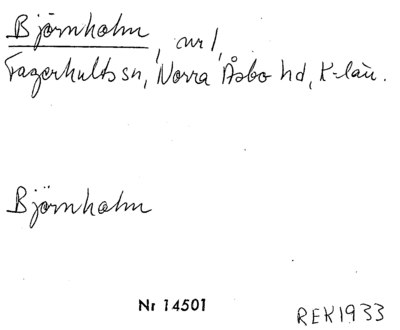 Björnholm, nr 1,
Fagerhults sn, Norra Åsbo hd, K-län.
Björnholm
Nr 14501
REK1933